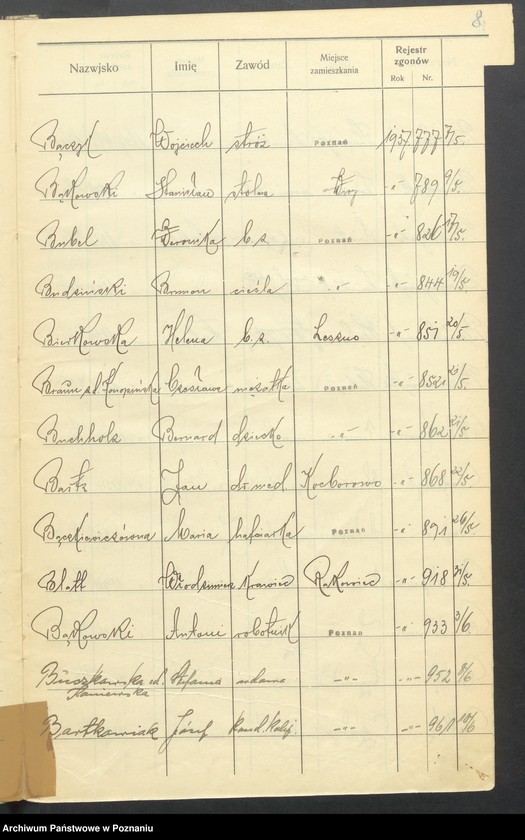 8.
Nazwjsko Imię Zawód Miejsce zamieszkania Rejestr zgonów Rok Nr.
Bączyk Wojciech stróż Poznań 1937 777 7/5.
Bąkowski Stanisław stolarz -"- 789 9/5.
Bubel Weronika b. z. Poznań -"- 826 17/5.
Budziński Roman cieśla -"- -"- 844 19/5.
Bierkowska Helena b. z. Leszno -"- 851 20/5.
Braun Czesława mężatka Poznań -"- 852 20/5.
Buchholz Bernard dziecko -"- -"- 862 21/5.
Bartz Jan dr. med. Kocborowo -"- 868 22/5.
Bączkiewiczówna Maria hafciarka Poznań -"- 891 26/5.
Blatt Włodzimierz Krawiec Rakowiec -"- 918 31/5.
Bąkowski Antoni robotnik Poznań -"- 933 3/6.
Buszkowska Stefania wdowa -"- -"- 952 8/6
Bartkowiak Józef -"- -"- 961 10/6
Archiwum Państwowe w Poznaniu